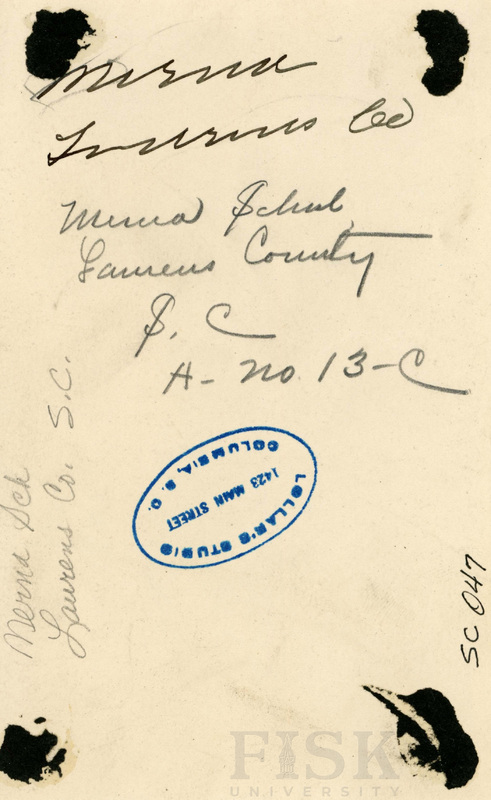 Merna
Laurens Co
Merna School
Laurens County
S. C
A - No. 13 - C
Merna Sch
Laurens Co. S.C.
LOLLAR'S STUDIO
1423 MAIN STREET
COLUMBIA, S. C.
SC 047
FISK
UNIVERSITY